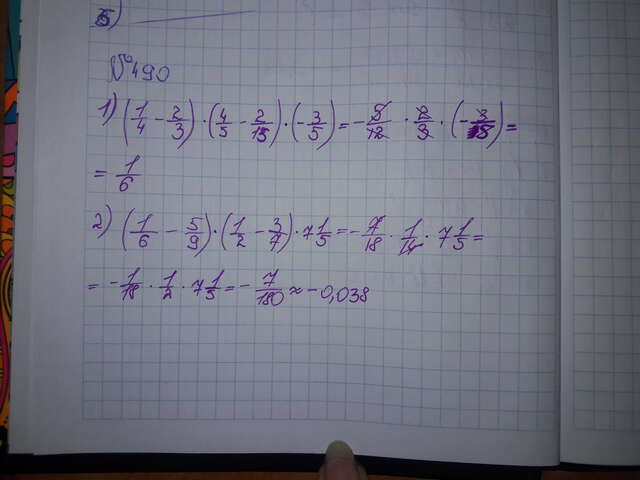 5)
№490
1) (1/4 - 2/3) · (4/5 - 2/15) · (-3/5) = -5/12 · 2/3 · (-3/5) =
= 1/6
2) (1/6 - 5/9) · (1/2 - 3/7) · 7 1/5 = -7/18 · 1/14 · 7 1/5 =
= -1/18 · 1/2 · 7 1/5 = -7/180 ≈ -0,038